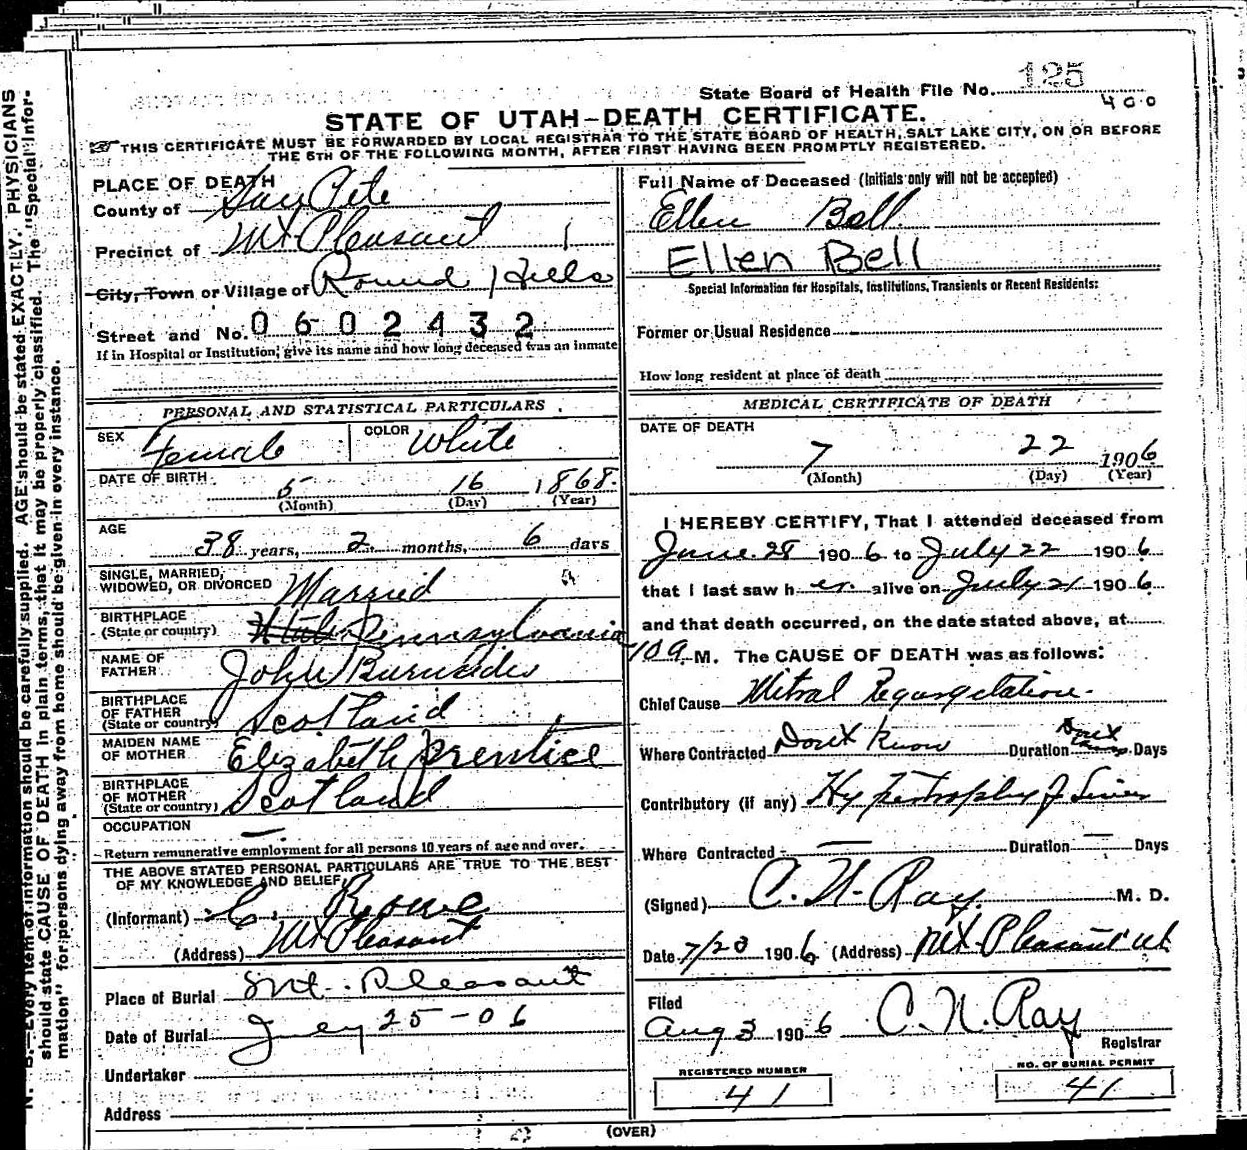 State Board of Health File No. 125
400
STATE OF UTAH—DEATH CERTIFICATE.
THIS CERTIFICATE MUST BE FORWARDED BY LOCAL REGISTRAR TO THE STATE BOARD OF HEALTH, SALT LAKE CITY, ON OR BEFORE
THE 5TH OF THE FOLLOWING MONTH, AFTER FIRST HAVING BEEN PROMPTLY REGISTERED.
PLACE OF DEATH
County of San Pete
Precinct of Mt Pleasant 1
City, Town or Village of Round Hills
Street and No. 0602432
If in Hospital or Institution, give its name and how long deceased was an inmate
PERSONAL AND STATISTICAL PARTICULARS
SEX Female COLOR White
DATE OF BIRTH 5 16 1868.
(Month) (Day) (Year)
AGE
38 years, 2 months, 6 days
SINGLE, MARRIED,
WIDOWED, OR DIVORCED Married
BIRTHPLACE
(State or country) Utah Pennsylvania
NAME OF
FATHER John Burnsides
BIRTHPLACE
OF FATHER
(State or country) Scotland
MAIDEN NAME
OF MOTHER Elizabeth Prentice
BIRTHPLACE
OF MOTHER
(State or country) Scotland
OCCUPATION —
Return remunerative employment for all persons 10 years of age and over.
THE ABOVE STATED PERSONAL PARTICULARS ARE TRUE TO THE BEST
OF MY KNOWLEDGE AND BELIEF,
(Informant) C. Rowe
(Address) Mt Pleasant
Place of Burial Mt. Pleasant
Date of Burial July 25-06
Undertaker
Address
Full Name of Deceased (Initials only will not be accepted)
Ellen Bell
Ellen Bell
Special Information for Hospitals, Institutions, Transients or Recent Residents:
Former or Usual Residence
How long resident at place of death
MEDICAL CERTIFICATE OF DEATH
DATE OF DEATH
7 22 1906
(Month) (Day) (Year)
I HEREBY CERTIFY, That I attended deceased from
June 28 1906 to July 22 1906
that I last saw her alive on July 21 1906
and that death occurred, on the date stated above, at
M. The CAUSE OF DEATH was as follows:
Chief Cause Mitral Regurgitation
Where Contracted Dont Know Duration Dont Days
Contributory (if any) Hypertrophy of Liver
Where Contracted — Duration — Days
(Signed) C. N. Ray. M. D.
Date 7/23 1906 (Address) Mt Pleasant Ut
Filed
Aug 3 1906 C. N. Ray
Registrar
REGISTERED NUMBER
41
NO. OF BURIAL PERMIT
41
(OVER)
N. B.—Every item of information should be carefully supplied. AGE should be stated EXACTLY. PHYSICIANS
should state CAUSE OF DEATH in plain terms, that it may be properly classified. The "Special Infor-
mation" for persons dying away from home should be given in every instance.